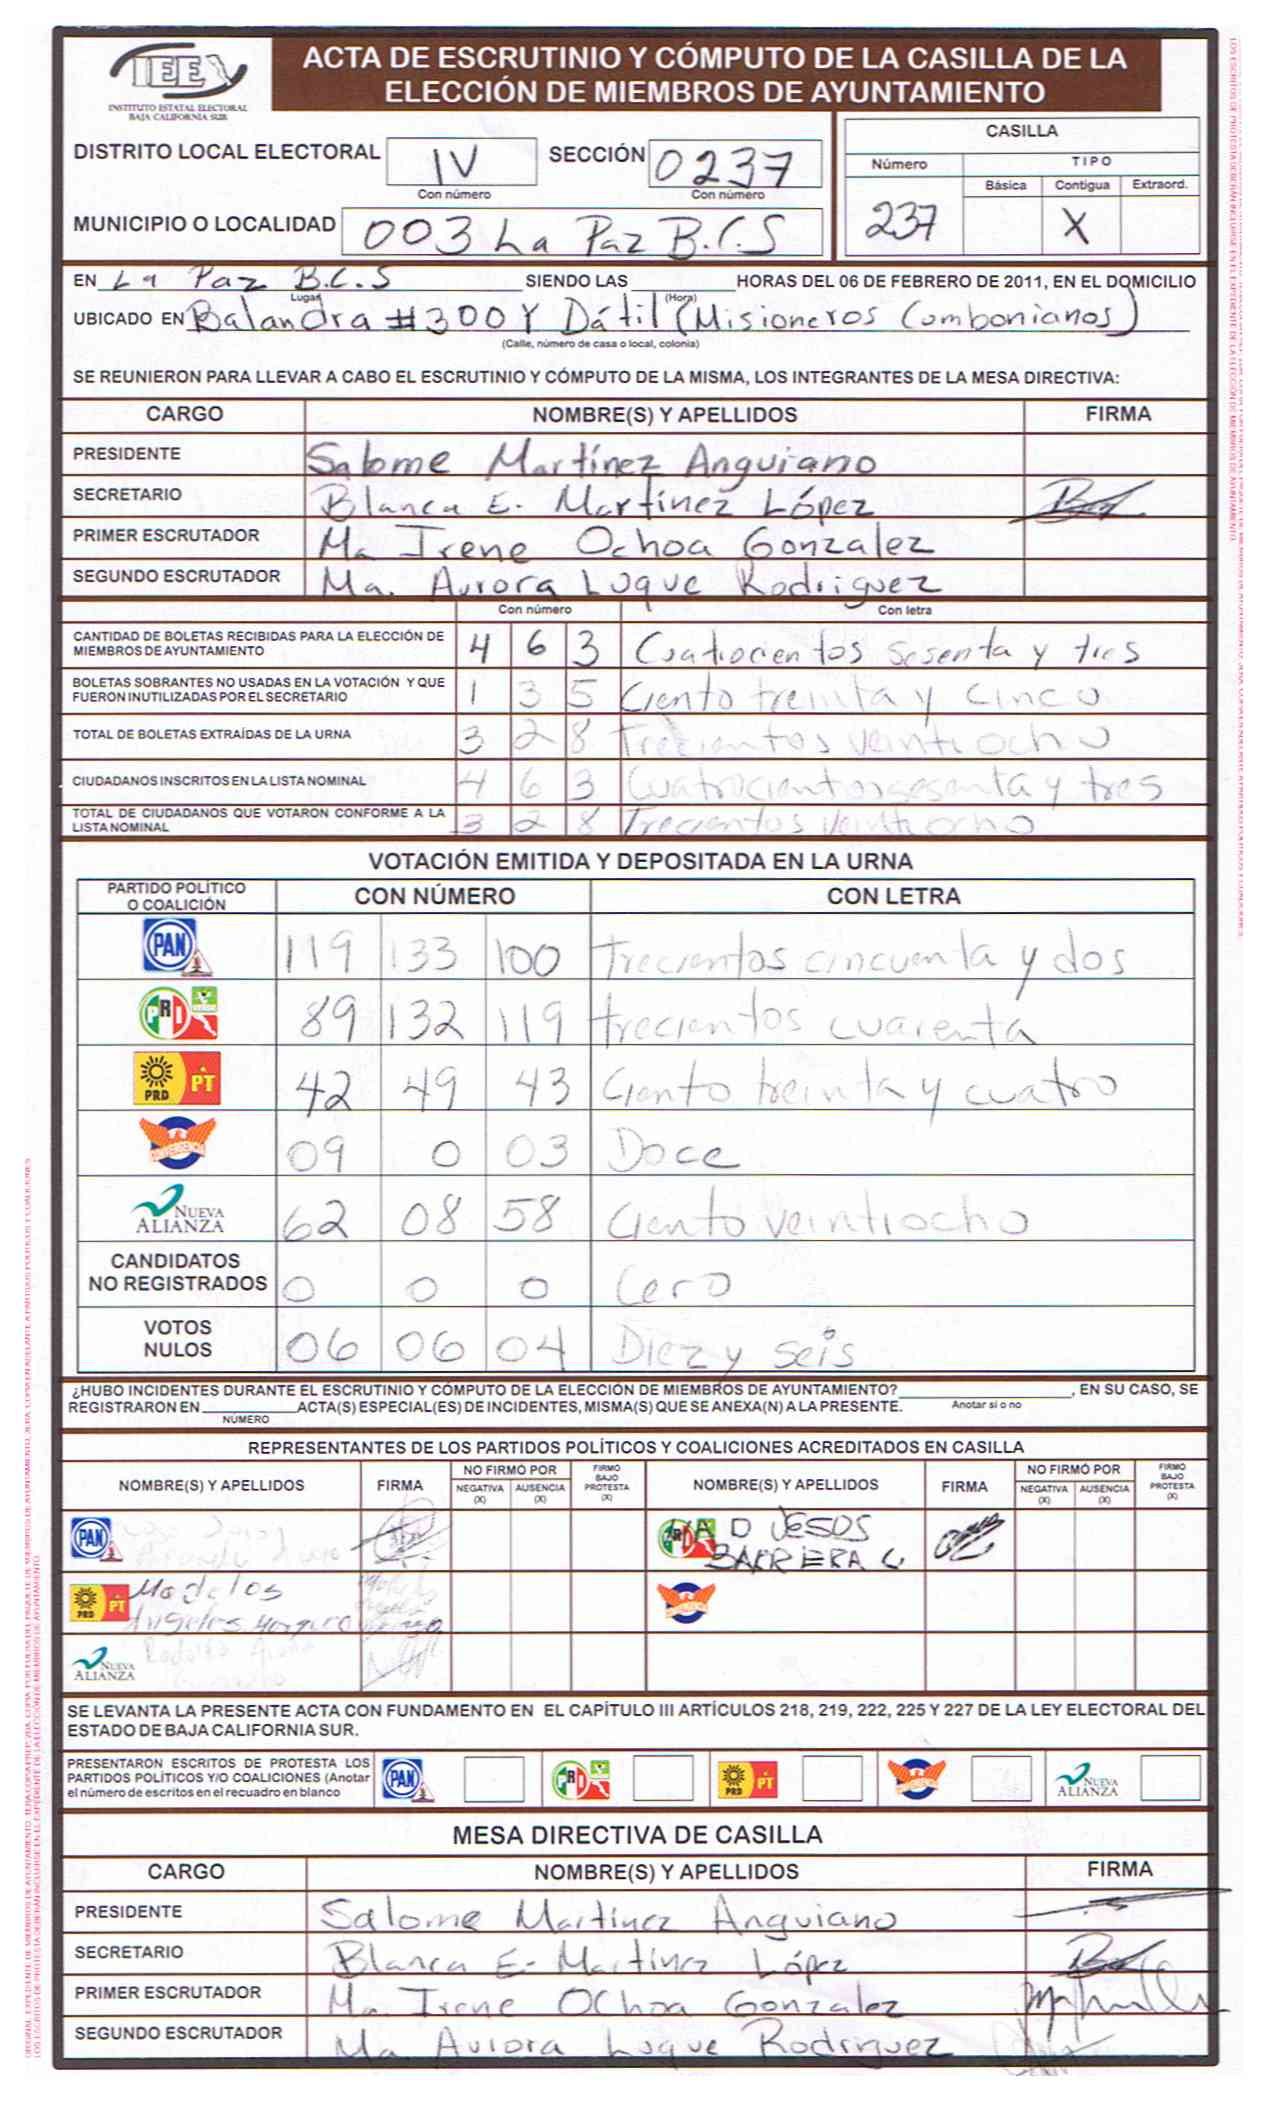 IEE
INSTITUTO ESTATAL ELECTORAL
BAJA CALIFORNIA SUR
ACTA DE ESCRUTINIO Y CÓMPUTO DE LA CASILLA DE LA
ELECCIÓN DE MIEMBROS DE AYUNTAMIENTO
DISTRITO LOCAL ELECTORAL IV SECCIÓN 0237
Con número Con número
MUNICIPIO O LOCALIDAD 003 La Paz B.C.S
CASILLA
Número TIPO
Básica Contigua Extraord.
237 X
EN La Paz B.C.S SIENDO LAS HORAS DEL 06 DE FEBRERO DE 2011, EN EL DOMICILIO
Lugar (Hora)
UBICADO EN Balandra #300 Y Dátil (Misioneros Combonianos)
(Calle, número de casa o local, colonia)
SE REUNIERON PARA LLEVAR A CABO EL ESCRUTINIO Y CÓMPUTO DE LA MISMA, LOS INTEGRANTES DE LA MESA DIRECTIVA:
CARGO NOMBRE(S) Y APELLIDOS FIRMA
PRESIDENTE Salome Martínez Anguiano
SECRETARIO Blanca E. Martínez López
PRIMER ESCRUTADOR Ma Irene Ochoa Gonzalez
SEGUNDO ESCRUTADOR Ma. Aurora Luque Rodriguez
Con número Con letra
CANTIDAD DE BOLETAS RECIBIDAS PARA LA ELECCIÓN DE
MIEMBROS DE AYUNTAMIENTO 4 6 3 Cuatrocientos sesenta y tres
BOLETAS SOBRANTES NO USADAS EN LA VOTACIÓN Y QUE
FUERON INUTILIZADAS POR EL SECRETARIO 1 3 5 Ciento treinta y cinco
TOTAL DE BOLETAS EXTRAÍDAS DE LA URNA 3 2 8 Trecientos veintiocho
CIUDADANOS INSCRITOS EN LA LISTA NOMINAL 4 6 3 Cuatrocientos sesenta y tres
TOTAL DE CIUDADANOS QUE VOTARON CONFORME A LA
LISTA NOMINAL 3 2 8 Trecientos veintiocho
VOTACIÓN EMITIDA Y DEPOSITADA EN LA URNA
PARTIDO POLÍTICO
O COALICIÓN CON NÚMERO CON LETRA
PAN 119 133 100 trecientos cincuenta y dos
PRI VERDE 89 132 119 trecientos cuarenta
PRD PT 42 49 43 Ciento treinta y cuatro
CONVERGENCIA 09 0 03 Doce
NUEVA ALIANZA 62 08 58 Ciento veintiocho
CANDIDATOS
NO REGISTRADOS 0 0 0 Cero
VOTOS
NULOS 06 06 04 Diez y seis
¿HUBO INCIDENTES DURANTE EL ESCRUTINIO Y CÓMPUTO DE LA ELECCIÓN DE MIEMBROS DE AYUNTAMIENTO? , EN SU CASO, SE
REGISTRARON EN ACTA(S) ESPECIAL(ES) DE INCIDENTES, MISMA(S) QUE SE ANEXA(N) A LA PRESENTE. Anotar si o no
NÚMERO
REPRESENTANTES DE LOS PARTIDOS POLÍTICOS Y COALICIONES ACREDITADOS EN CASILLA
NOMBRE(S) Y APELLIDOS FIRMA NO FIRMÓ POR NEGATIVA (X) AUSENCIA (X) FIRMÓ BAJO PROTESTA (X) NOMBRE(S) Y APELLIDOS FIRMA NO FIRMÓ POR NEGATIVA (X) AUSENCIA (X) FIRMÓ BAJO PROTESTA (X)
PAN PRI MA D JESUS
BARRERA
PRD PT Ma de los
Angeles
NUEVA ALIANZA Rodolfo
SE LEVANTA LA PRESENTE ACTA CON FUNDAMENTO EN EL CAPÍTULO III ARTÍCULOS 218, 219, 222, 225 Y 227 DE LA LEY ELECTORAL DEL
ESTADO DE BAJA CALIFORNIA SUR.
PRESENTARON ESCRITOS DE PROTESTA LOS
PARTIDOS POLÍTICOS Y/O COALICIONES (Anotar
el número de escritos en el recuadro en blanco
PAN PRI PRD PT NUEVA ALIANZA
MESA DIRECTIVA DE CASILLA
CARGO NOMBRE(S) Y APELLIDOS FIRMA
PRESIDENTE Salome Martínez Anguiano
SECRETARIO Blanca E. Martínez López
PRIMER ESCRUTADOR Ma. Irene Ochoa Gonzalez
SEGUNDO ESCRUTADOR Ma Aurora Luque Rodriguez